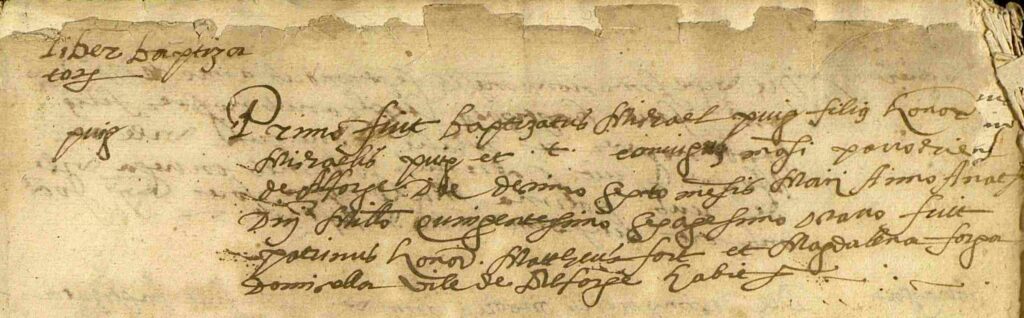 Liber baptiza
torũ
puig
Primo fuit baptizatus Michael puig filiꝰ honor
Michaelis puig et t. coniugũ mansi parrochiens
de Alforge Die decimo sexto mensis Mari Anno A nat
Dnj Millo quingentessimo sexagesimo octavo fuit
patrinus honor Mattheus fort et Magdalena
Domicella Vile de Alforge